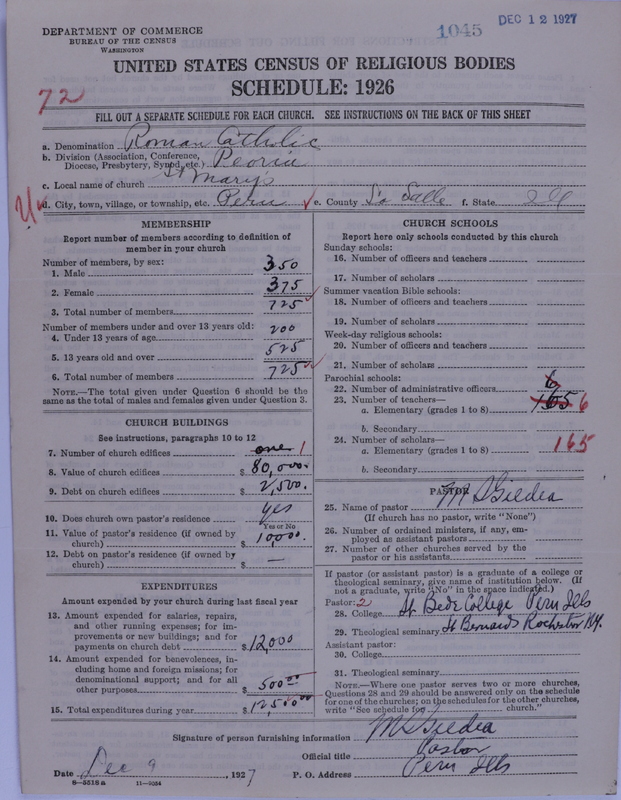 DEPARTMENT OF COMMERCE
BUREAU OF THE CENSUS
WASHINGTON
1045
DEC 12 1927
UNITED STATES CENSUS OF RELIGIOUS BODIES
SCHEDULE: 1926
72
FILL OUT A SEPARATE SCHEDULE FOR EACH CHURCH. SEE INSTRUCTIONS ON THE BACK OF THIS SHEET
a. Denomination Roman Catholic
b. Division (Association, Conference, Diocese, Presbytery, Synod, etc.) Peoria
c. Local name of church St Mary's
d. City, town, village, or township, etc. Peru e. County La Salle f. State Ill
MEMBERSHIP
Report number of members according to definition of
member in your church
Number of members, by sex:
1. Male 350
2. Female 375
3. Total number of members 725
Number of members under and over 13 years old:
4. Under 13 years of age 200
5. 13 years old and over 525
6. Total number of members 725
NOTE.—The total given under Question 6 should be
same as the total of males and females given under Question 3.
CHURCH BUILDINGS
See instructions, paragraphs 10 to 12
7. Number of church edifices one 1
8. Value of church edifices $ 80,000.
9. Debt on church edifices $ 2,500.
10. Does church own pastor's residence yes
Yes or No
11. Value of pastor's residence (if owned by
church) $ 10,000.
12. Debt on pastor's residence (if owned by
church) $ —
EXPENDITURES
Amount expended by your church during last fiscal year
13. Amount expended for salaries, repairs,
and other running expenses; for im-
provements or new buildings; and for
payments on church debt $ 12000
14. Amount expended for benevolences, in-
cluding home and foreign missions; for
denominational support; and for all
other purposes $ 500.00
15. Total expenditures during year $ 12,500.00
CHURCH SCHOOLS
Report here only schools conducted by this church
Sunday schools:
16. Number of officers and teachers
17. Number of scholars
Summer vacation Bible schools:
18. Number of officers and teachers
19. Number of scholars
Week-day religious schools:
20. Number of officers and teachers
21. Number of scholars
Parochial schools:
22. Number of administrative officers 6
23. Number of teachers—
a. Elementary (grades 1 to 8) 165 6
b. Secondary
24. Number of scholars—
a. Elementary (grades 1 to 8) 165
b. Secondary
PASTOR
25. Name of pastor M Gildea
(If church has no pastor, write "None")
26. Number of ordained ministers, if any, em-
ployed as assistant pastors
27. Number of other churches served by the
pastor or his assistants
If pastor (or assistant pastor) is a graduate of a college or
theological seminary, give name of institution below. (If
not a graduate, write "No" in the space indicated.)
Pastor: 2
28. College St Bede College Peru Ills
29. Theological seminary St Bernards Rochester N.Y.
Assistant pastor:
30. College
31. Theological seminary
NOTE.—Where one pastor serves two or more churches,
Questions 28 and 29 should be answered only on the schedule
for one of the churches; on the schedules for the other churches,
write "See schedule for church."
Signature of person furnishing information M Gildea
Official title Pastor
Date Dec 9, 1927 P. O. Address Peru Ills
8—5518a 11—9034